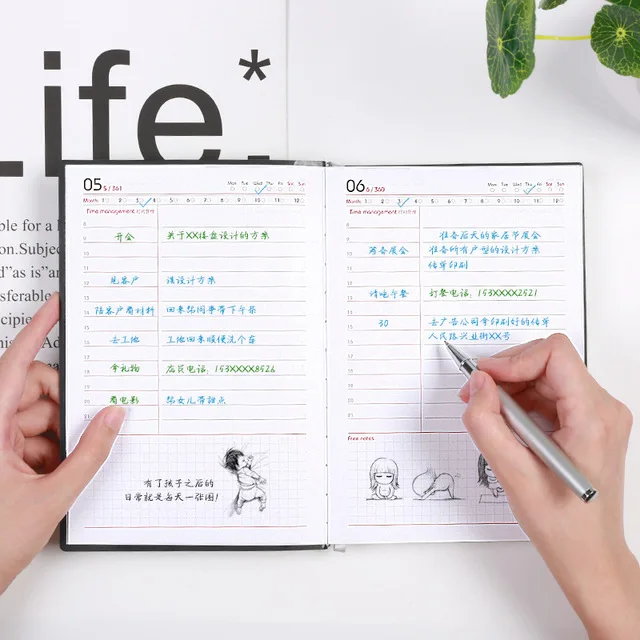 Life.*
05 5 / 361
Mon Tue Wed Thu Fri Sat Sun
Month: 1 2 3 4 5 6 7 8 9 10 11 12
Time management 时间管理
8
9 开会 关于XX楼盘设计的方案
10
11
12 见客户 谈设计方案
13
14 陪客户看材料 回来给同事带下午茶
15
16 去工地 工地回来顺便洗个车
17
18 拿礼物 店员电话: 153XXXX8526
19
20 看电影 帮女儿带甜点
21
有了孩子之后的
日常就是每天一张图!
06 6 / 360
Mon Tue Wed Thu Fri Sat Sun
Month: 1 2 3 4 5 6 7 8 9 10 11 12
Time management 时间管理
8
9 准备后天的家居节展会
10 筹备展会 准备所有户型的设计方案
11 传单印刷
12
13 请吃午餐 订餐电话: 153XXXX2521
14
15 30 去广告公司拿印刷好的传单
16 人民路兴业街XX号
17
18
19
20
free notes
ble for a l
on.Subjec
d"as is"an
sferable
cipie